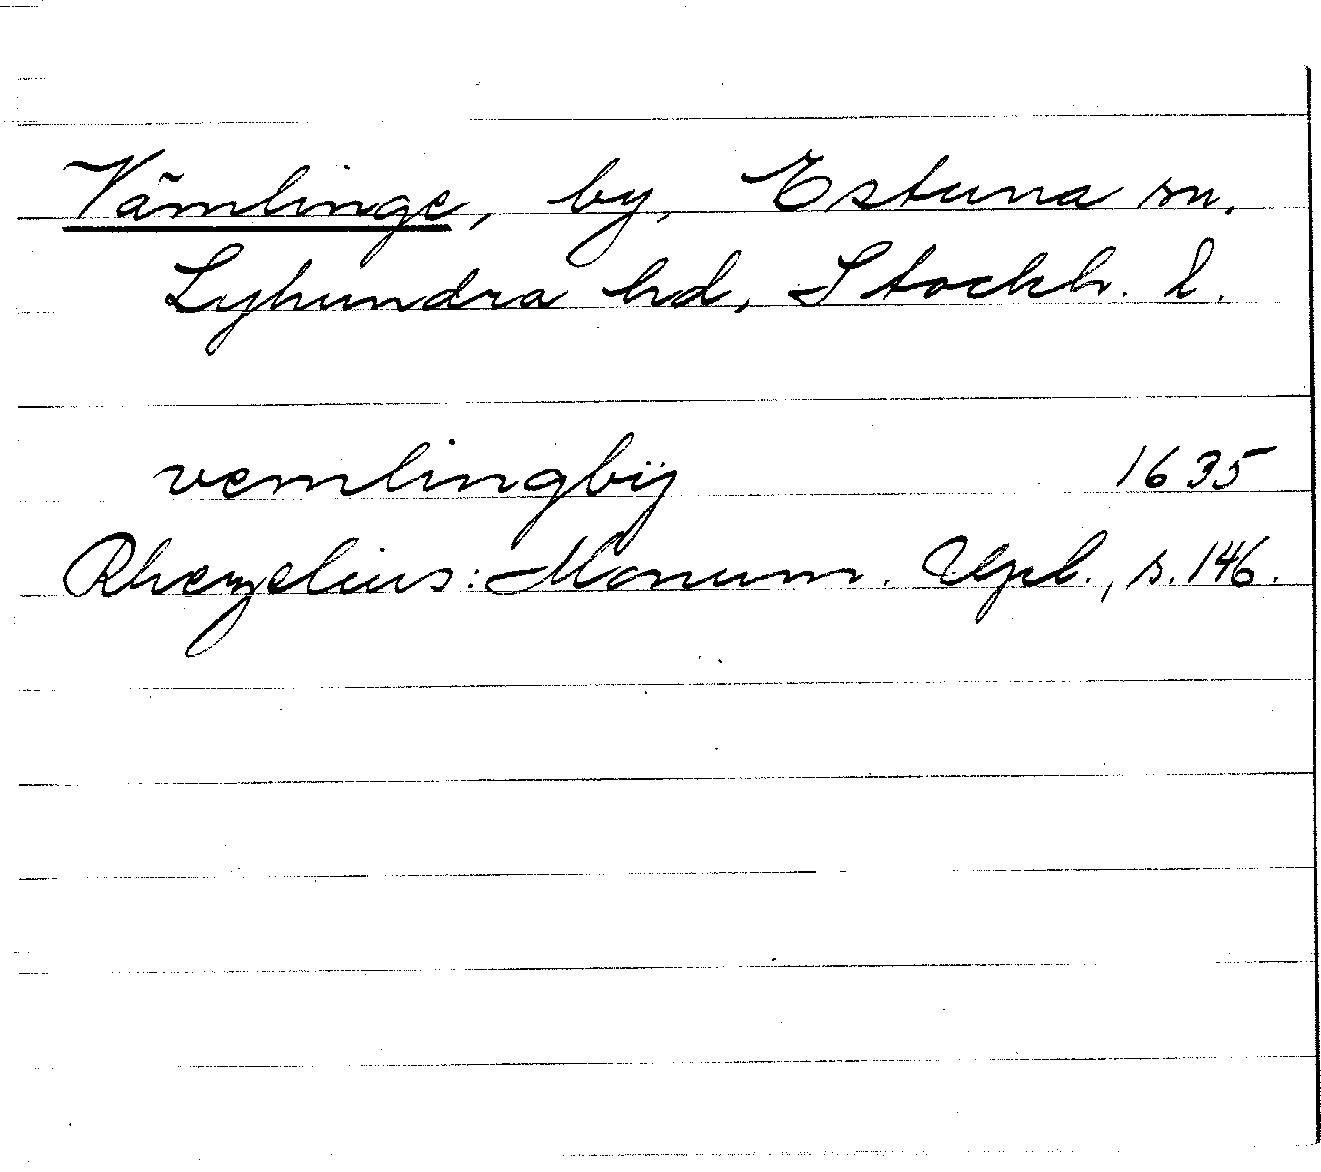 Vämlinge, by, Estuna sn.
Lyhundra hd, Stockh. l.
vemlingbÿ 1635
Rhezelius: Monum. Upl., s. 146.